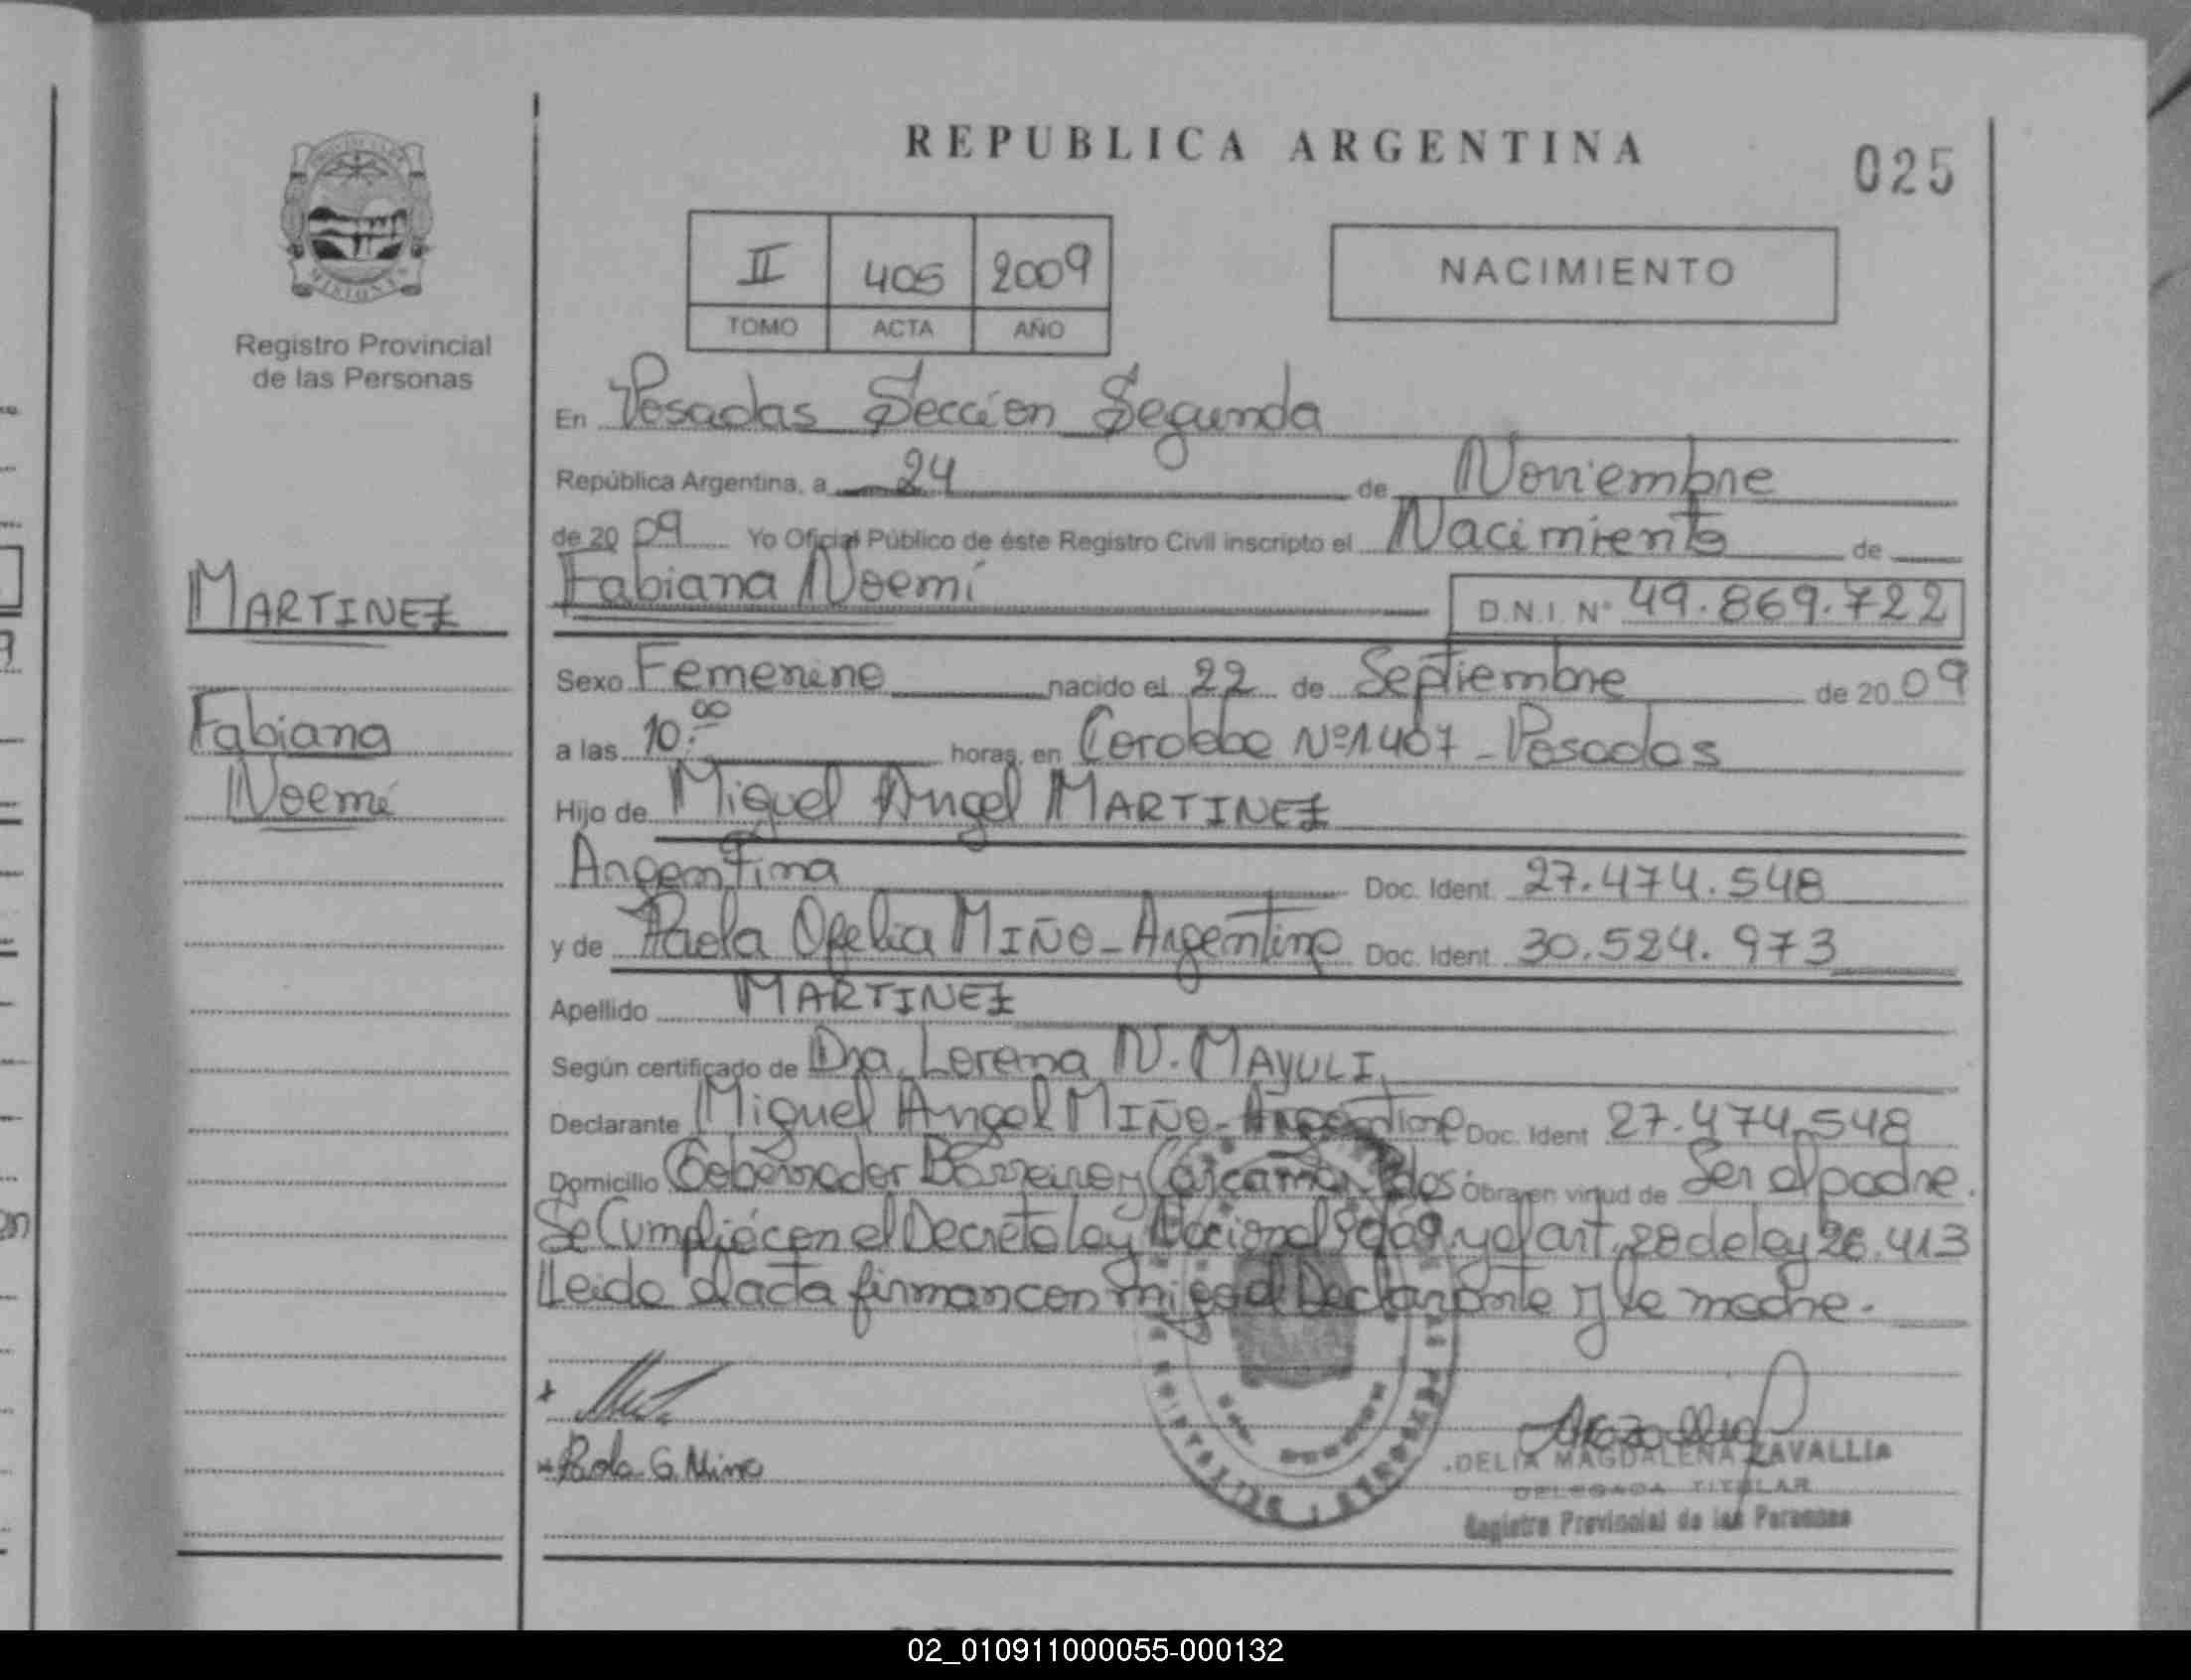 REPUBLICA ARGENTINA
025
II 405 2009
TOMO ACTA AÑO
NACIMIENTO
Registro Provincial
de las Personas
MARTINEZ
Fabiana
Noemí
En Posadas Sección Segunda
República Argentina, a 24 de Noviembre
de 2009 Yo Oficial Público de éste Registro Civil inscripto el Nacimiento de
Fabiana Noemí D.N.I. Nº 49.869.722
Sexo Femenino nacido el 22 de Septiembre de 2009
a las 10:00 horas, en Cordoba Nº1407 - Posadas
Hijo de Miguel Angel MARTINEZ
Argentina Doc. Ident. 27.474.548
y de Paola Ofelia MIÑO - Argentina Doc. Ident. 30.524.973
Apellido MARTINEZ
Según certificado de Dra. Lorena N. MAYULI
Declarante Miguel Angel MIÑO - Argentino Doc. Ident 27.474.548
Domicilio Gobernador Barreiro y Posadas Obra en virtud de Ser el padre.
Se Cumplió con el Decreto Ley Nacional y el art. 28 de ley 26.413
Leida el acta firman con migo el Declarante y la madre.
Paola G. Miño
DELIA MAGDALENA ZAVALLIA
DELEGADA TITULAR
Registro Provincial de las Personas
02_010911000055-000132